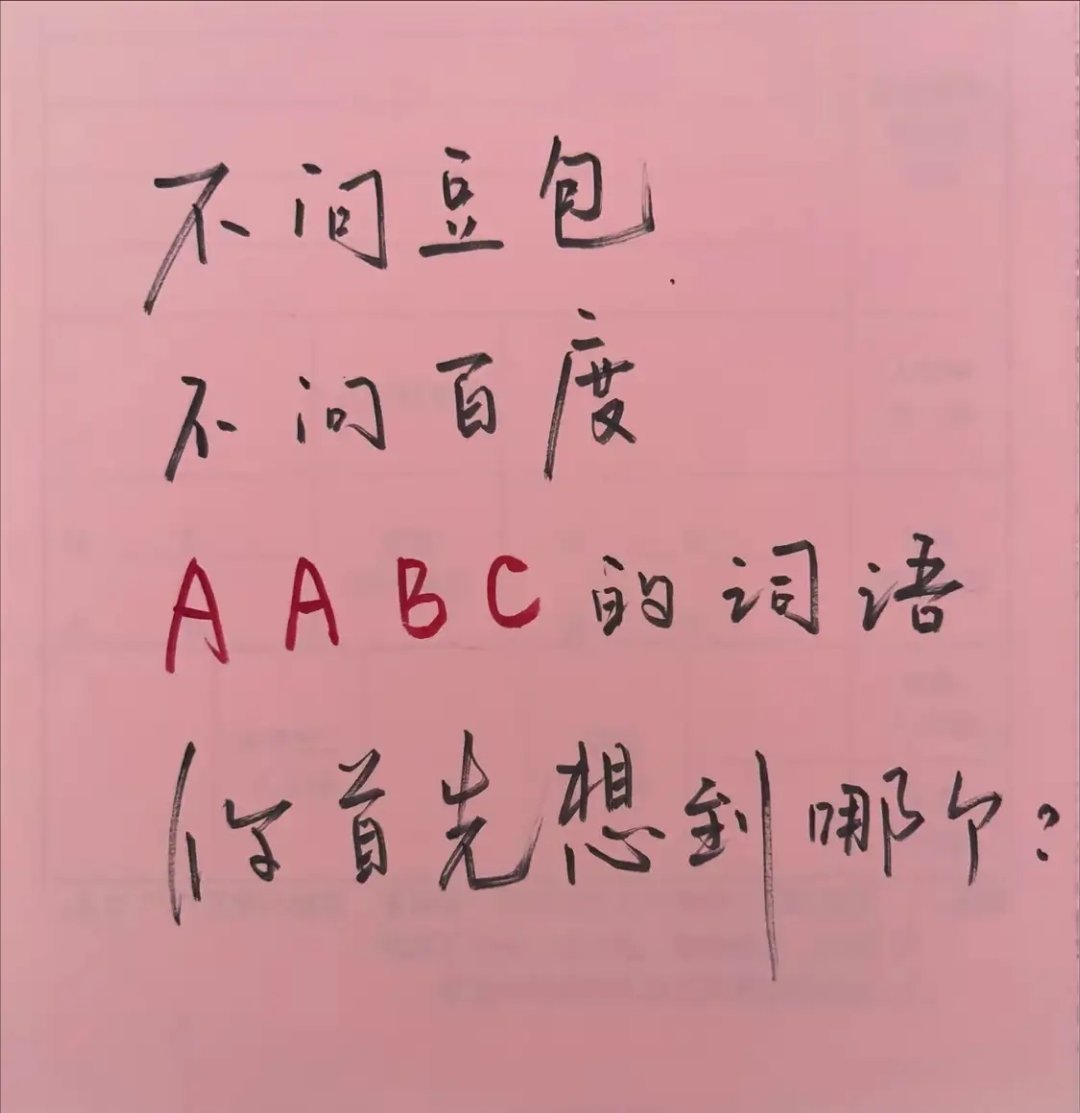 不问豆包
不问百度
AABC的词语
你首先想到哪个?